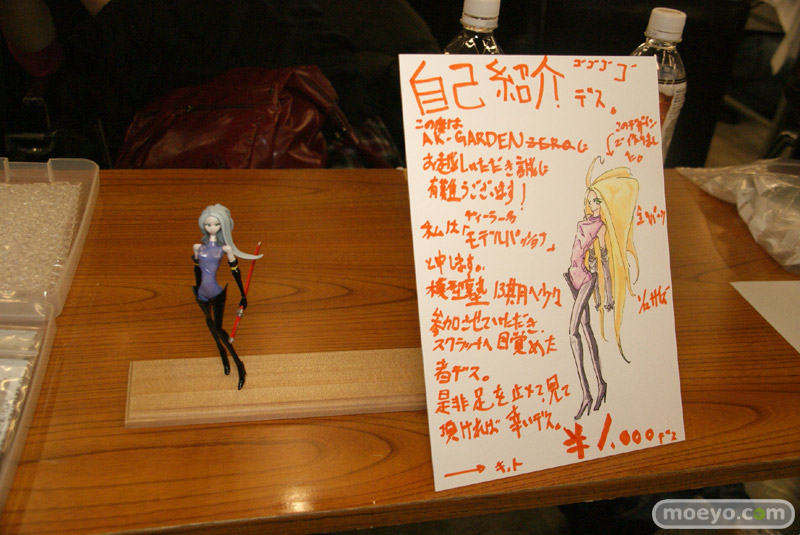 自己紹介デス。
ゴゴゴゴ
この度は
AK-GARDEN ZEROに
お越しいただき誠に
有難うございます!
ディーラー名
私は「モデルパッション」
と申します。
模型塾13期
参加させていただき、
スクラッチへ目覚めた
者デス。
是非足を止めて見て
頂ければ幸いデス。
¥1,000デス
→ キット
このデザイン
で作りまし
た。
全
moeyo.com